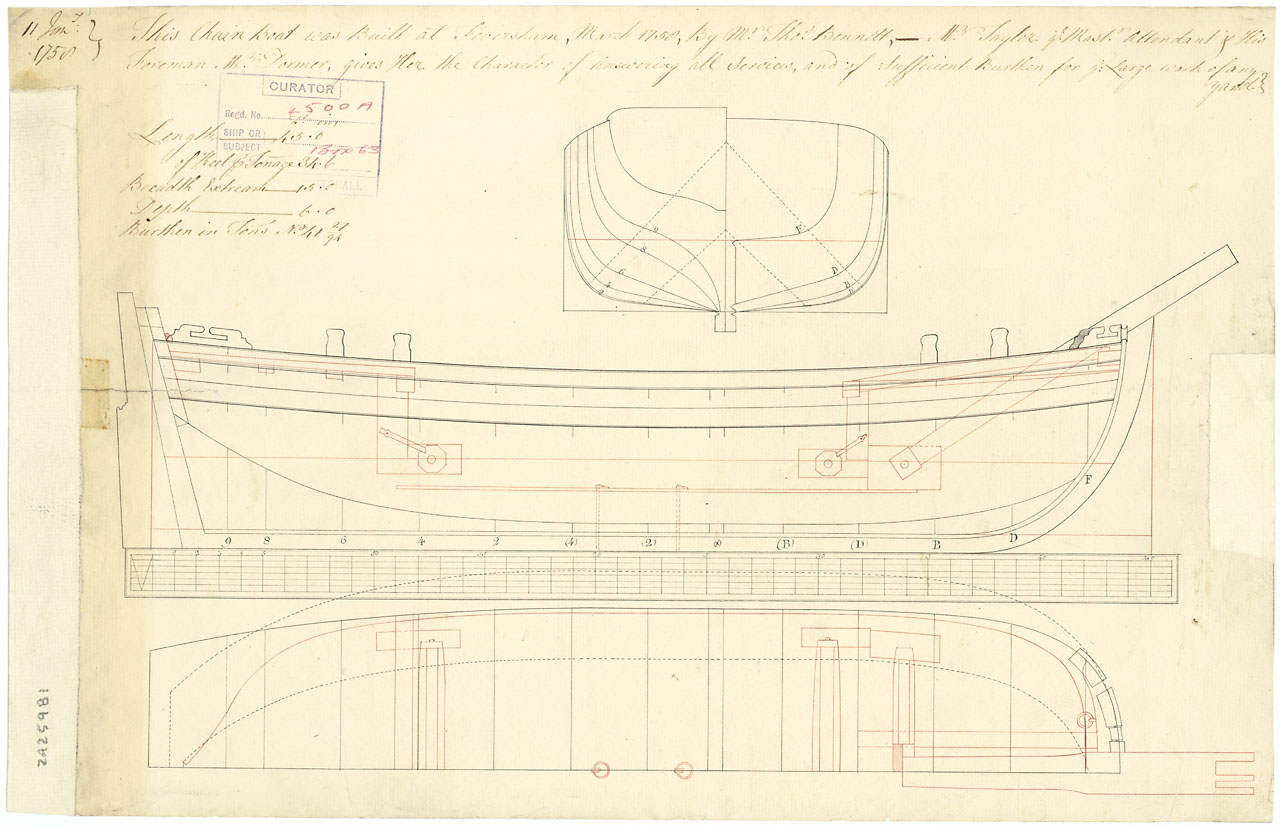 11 Jan.y
1758
This Chain Boat was Built at Feversham, March 1758, By Mr. Thos. Bennett, — Mr. Taylor ye Mastr. Attendant & His
Foreman Mr. Dormer, gives Her the Character of answering all Services, and of Sufficient Burthen for ye Large work of any
yard
CURATOR
Regd. No. 4500A
SHIP OR
SUBJECT
Box 63
Length 45.0
of Keel for Tonnage 34.6
Breadth Extream 15.0
Depth 6.0
Burthen in Tons No. 41 27/94
9
8
6
4
2
F
D
B
F
9 8 6 4 2 (4) (2) (B) (D) B D
ZAZ5981